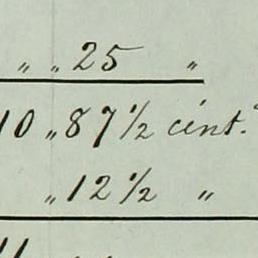 „ „ 25 „
10 „ 87 1/2 cent.
„ 12 1/2 „